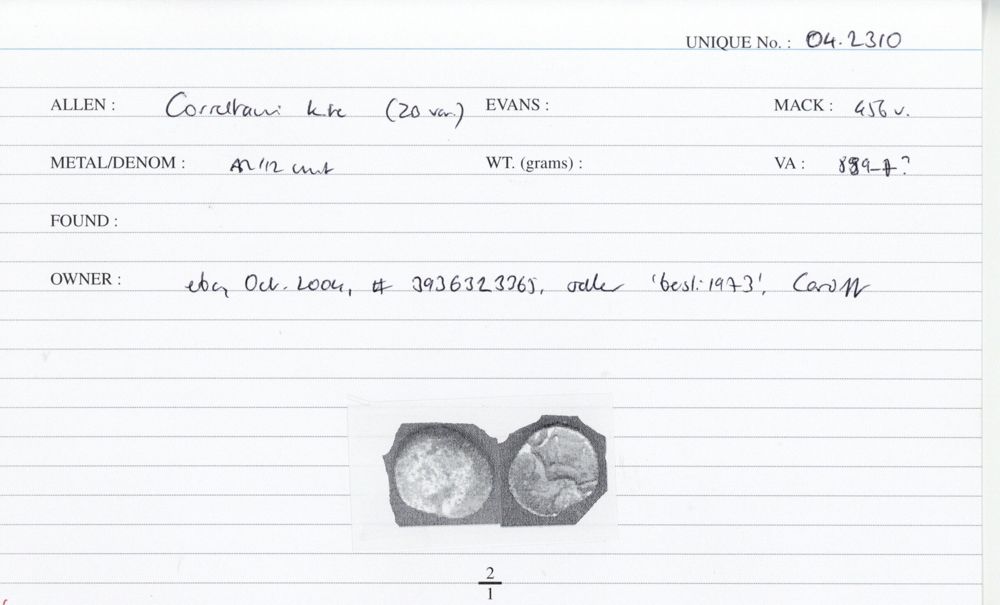 UNIQUE No. : 04.2310
ALLEN : Corieltauvi kite (20 var.) EVANS : MACK : 456 v.
METAL/DENOM : AR/12 unit WT. (grams) : VA :
FOUND :
OWNER : ebay Oct. 2004, # 3936323365, seller 'besl:1973', Cardiff
2
1